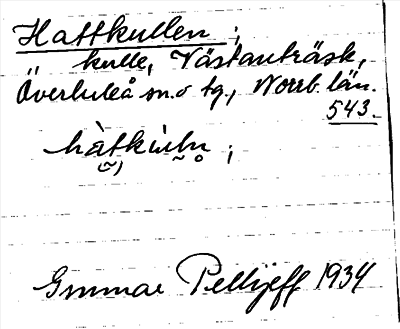 Hattkullen ;
kulle, Västanträsk,
Överluleå sn. o tg., Norrb. län.
543.
Gunnar Pellijeff 1934